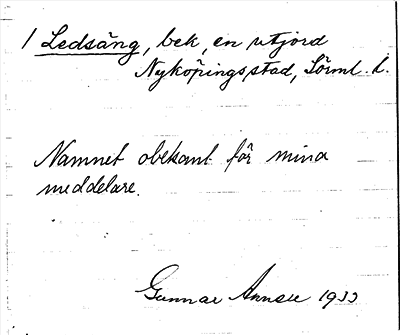 1 Ledsäng, bek, en utjord
Nyköpings stad, Sörml. l.
Namnet obekant för mina
meddelare.
Gunnar 1933